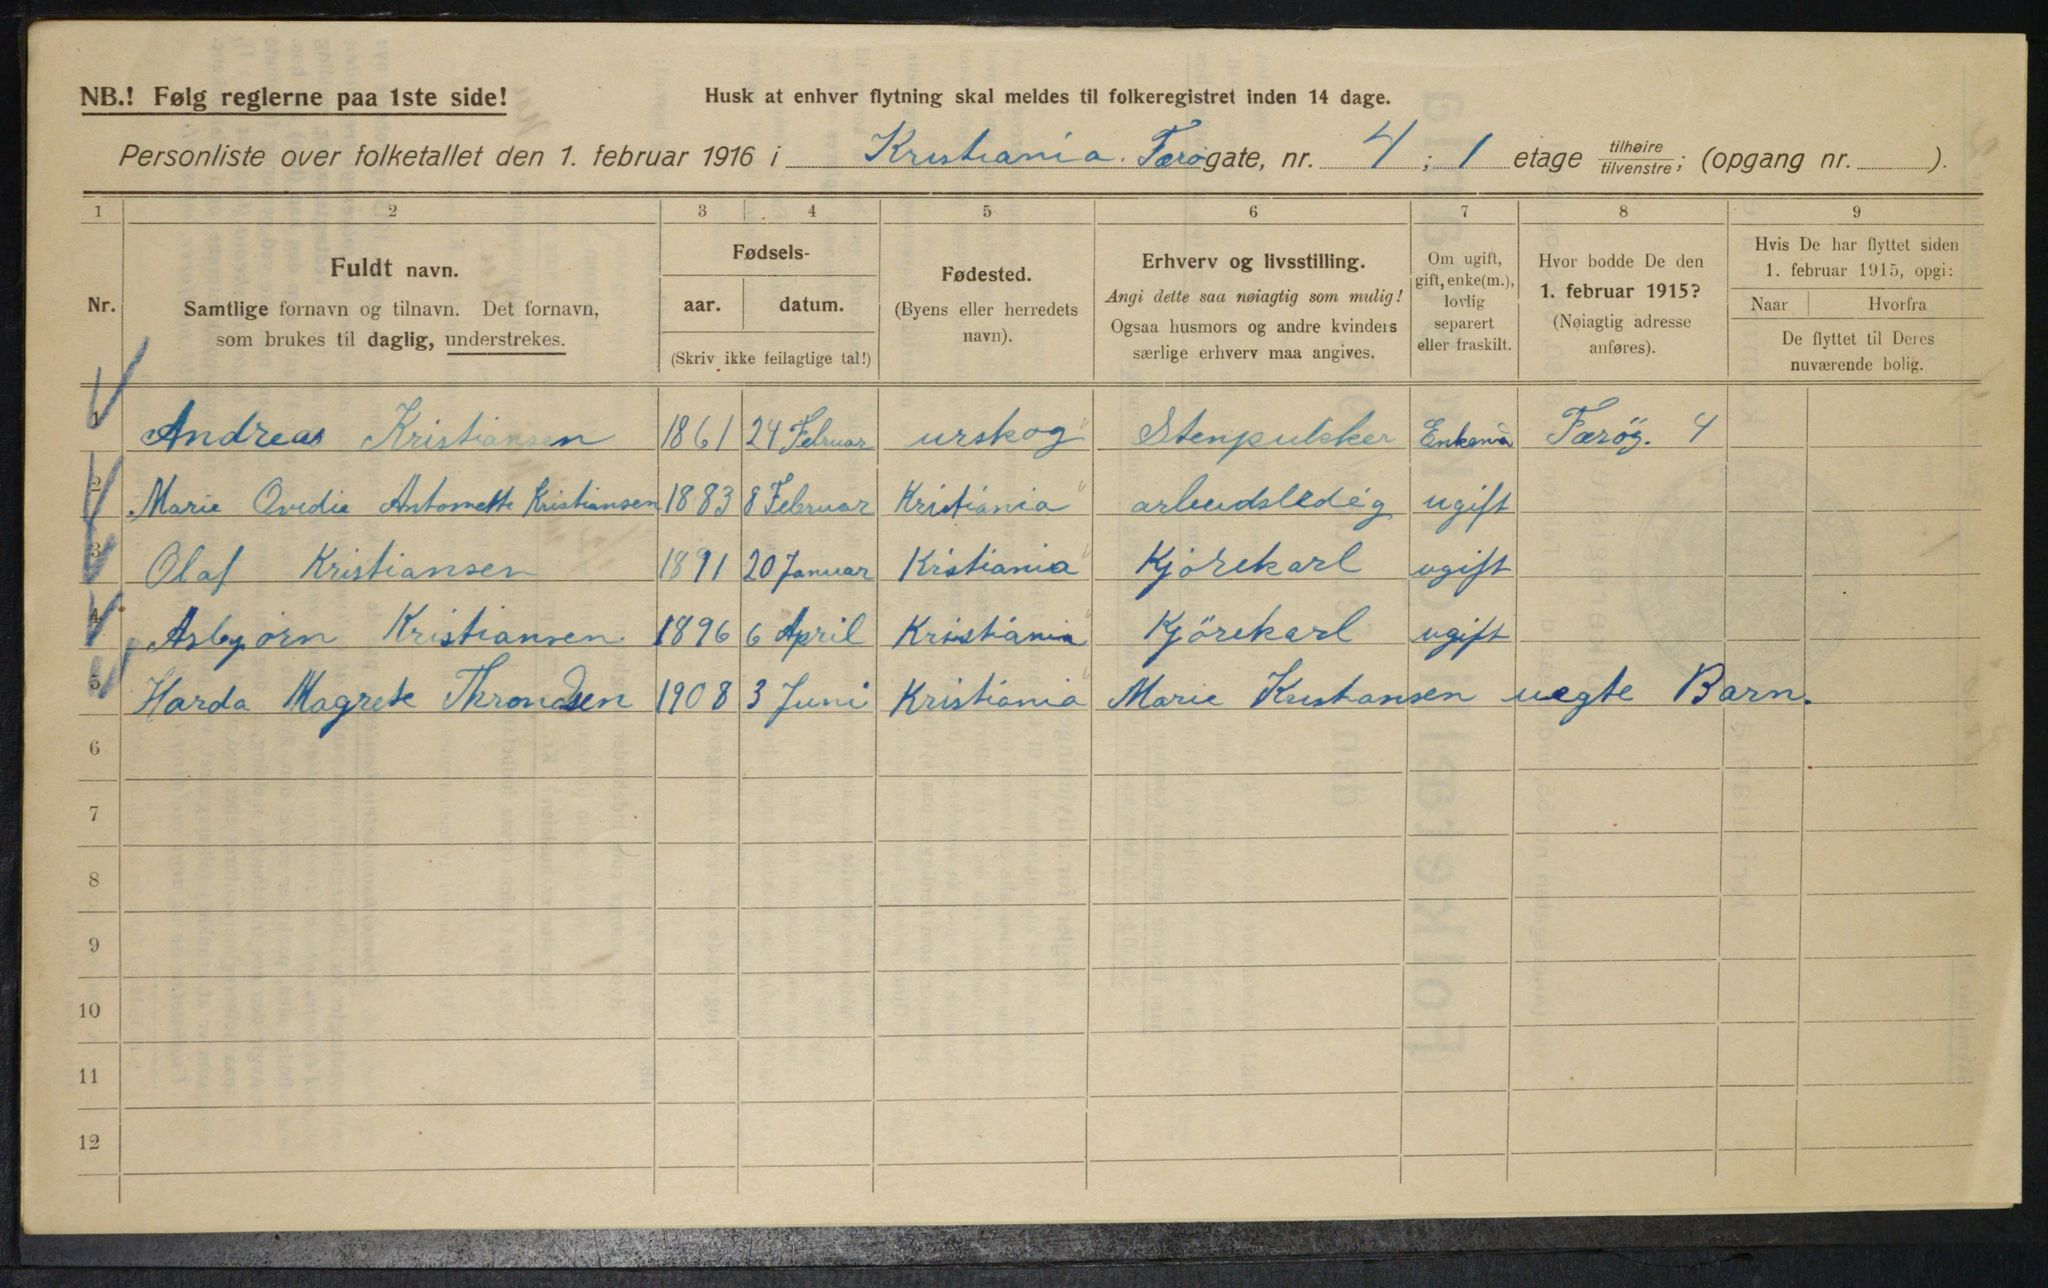 NB.! Følg reglerne paa 1ste side!
Husk at enhver flytning skal meldes til folkeregistret inden 14 dage.
Personliste over folketallet den 1. februar 1916 i Kristiania. Færøgate, nr. 4 ; 1 etage tilhøire tilvenstre; (opgang nr. ).
1 2 3 4 5 6 7 8 9
Nr.
Fuldt navn.
Samtlige fornavn og tilnavn. Det fornavn,
som brukes til daglig, understrekes.
Fødsels-
aar. datum.
(Skriv ikke feilagtige tal!)
Fødested.
(Byens eller herredets
navn).
Erhverv og livsstilling.
Angi dette saa nøiagtig som mulig!
Ogsaa husmors og andre kvinders
særlige erhverv maa angives.
Om ugift,
gift, enke(m.),
lovlig
separert
eller fraskilt.
Hvor bodde De den
1. februar 1915?
(Nøiagtig adresse
anføres).
Hvis De har flyttet siden
1. februar 1915, opgi:
Naar Hvorfra
De flyttet til Deres
nuværende bolig.
1 Andreas Kristiansen 1861 24 Februar urskog Stenpukker Enkema Færøg. 4
2 Marie Ovedie Antonette Kristiansen 1883 8 Februar Kristiania arbeidsledig ugift
3 Olaf Kristiansen 1891 20 Januar Kristiania Kjörekarl ugift
4 Asbjörn Kristiansen 1896 6 April Kristiania Kjörekarl ugift
5 Harda Magrete Throndsen 1908 3 Juni Kristiania Marie Kristiansen uegte Barn.
6
7
8
9
10
11
12